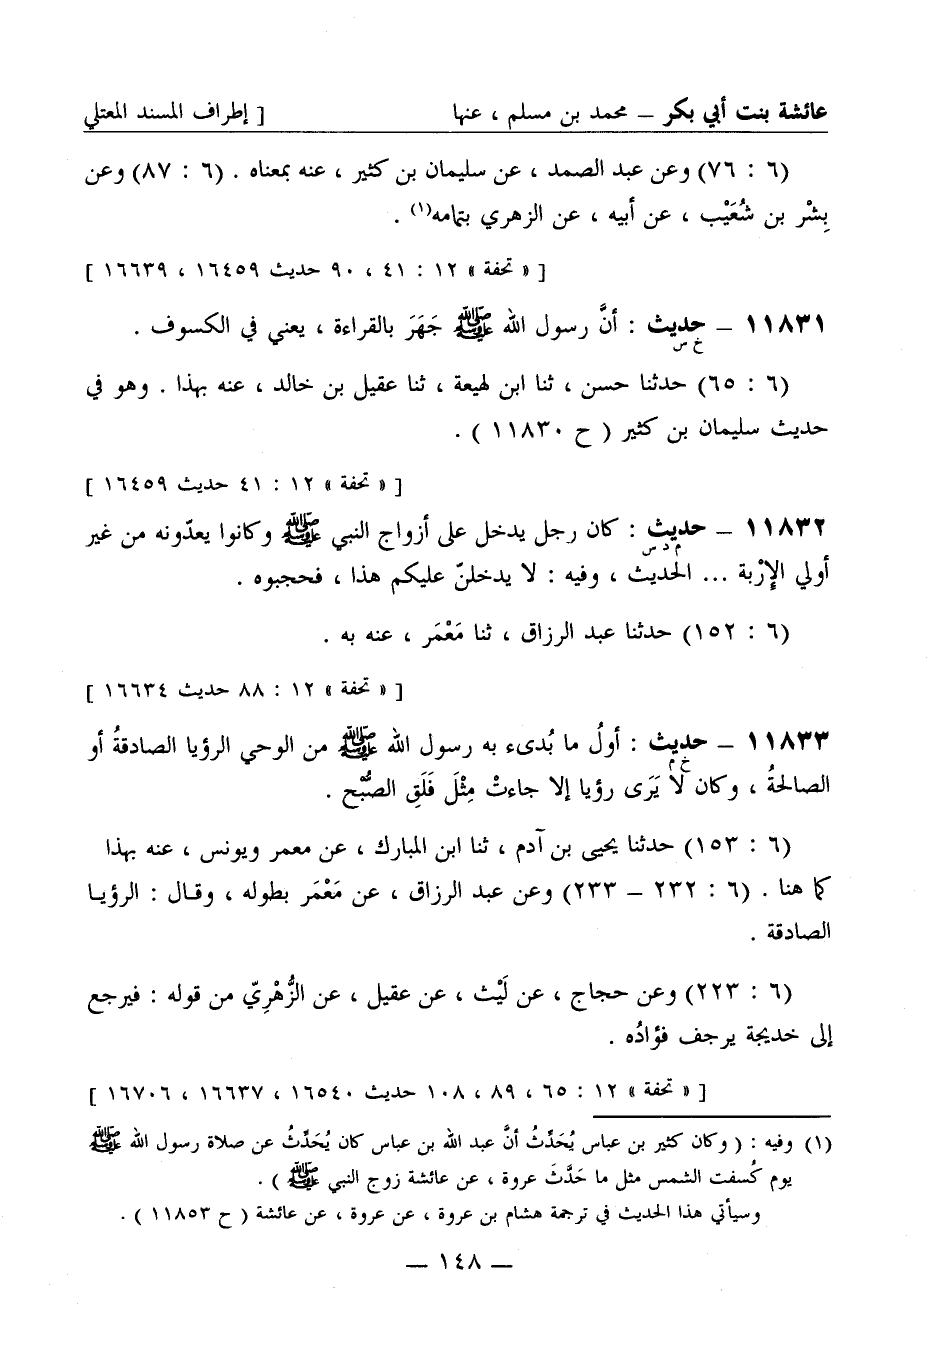 عائشة بنت أبي بكر – محمد بن مسلم ، عنها [ إطراف المسند المعتلي
(٦ : ٧٦) وعن عبد الصمد ، عن سليمان بن كثير ، عنه بمعناه . (٦ : ٨٧) وعن
بِشْر بن شُعَيْب ، عن أبيه ، عن الزهري بتمامه(١) .
[ « تحفة » ١٢ : ٤١ ، ٩٠ حديث ١٦٤٥٩ ، ١٦٦٣٩ ]
١١٨٣١ – حديث : أنَّ رسول الله ﷺ جَهَرَ بالقراءة ، يعني في الكسوف .
خ س
(٦ : ٦٥) حدثنا حسن ، ثنا ابن لهيعة ، ثنا عقيل بن خالد ، عنه بهذا . وهو في
حديث سليمان بن كثير ( ح ١١٨٣٠ ) .
[ « تحفة » ١٢ : ٤١ حديث ١٦٤٥٩ ]
١١٨٣٢ – حديث : كان رجل يدخل على أزواج النبي ﷺ وكانوا يعدّونه من غير
م د س
أولي الإرْبة ... الحديث ، وفيه : لا يدخلنّ عليكم هذا ، فحجبوه .
(٦ : ١٥٢) حدثنا عبد الرزاق ، ثنا مَعْمَر ، عنه به .
[ « تحفة » ١٢ : ٨٨ حديث ١٦٦٣٤ ]
١١٨٣٣ – حديث : أولُ ما بُدىء به رسول الله ﷺ من الوحي الرؤيا الصادقةُ أو
خ م
الصالحةُ ، وكان لا يَرَى رؤيا إلا جاءتْ مِثْلَ فَلَقِ الصُّبْح .
(٦ : ١٥٣) حدثنا يحيى بن آدم ، ثنا ابن المبارك ، عن معمر ويونس ، عنه بهذا
كما هنا . (٦ : ٢٣٢ – ٢٣٣) وعن عبد الرزاق ، عن مَعْمَر بطوله ، وقال : الرؤيا
الصادقة .
(٦ : ٢٢٣) وعن حجاج ، عن لَيْث ، عن عقيل ، عن الزُّهْرِيّ من قوله : فيرجع
إلى خديجة يرجف فؤادُه .
[ « تحفة » ١٢ : ٦٥ ، ٨٩ ، ١٠٨ حديث ١٦٥٤٠ ، ١٦٦٣٧ ، ١٦٧٠٦ ]
(١) وفيه : ( وكان كثير بن عباس يُحَدِّثُ أنَّ عبد الله بن عباس كان يُحَدِّثُ عن صلاة رسول الله ﷺ
يوم كُسفت الشمس مثل ما حَدَّثَ عروة ، عن عائشة زوج النبي ﷺ ) .
وسيأتي هذا الحديث في ترجمة هشام بن عروة ، عن عروة ، عن عائشة ( ح ١١٨٥٣ ) .
– ١٤٨ –